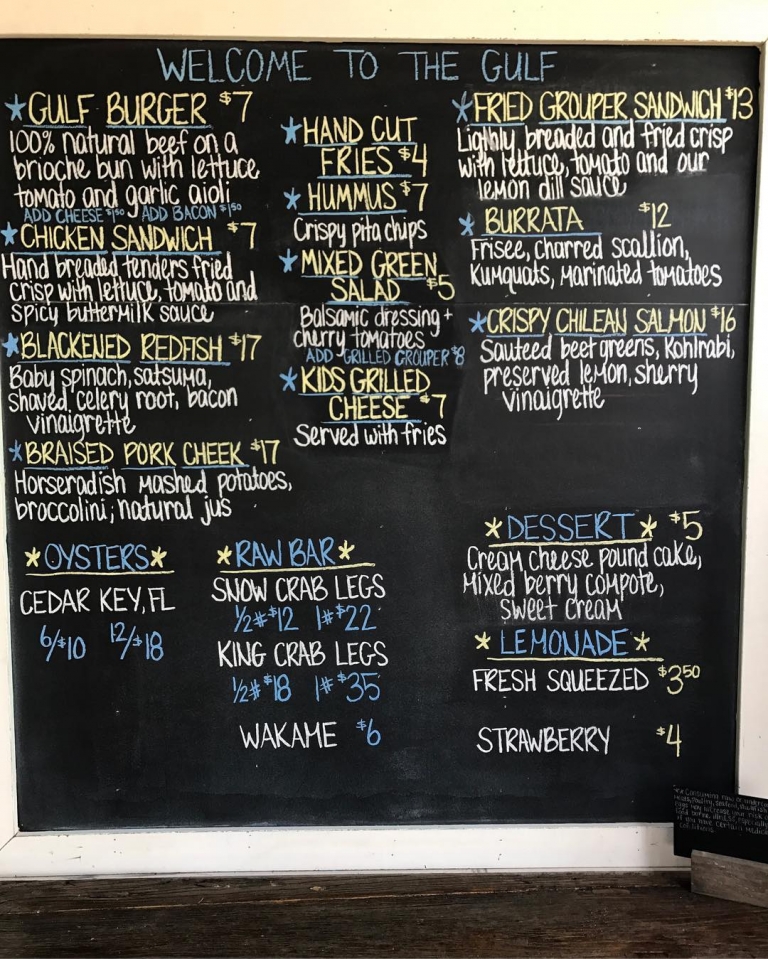 WELCOME TO THE GULF
★GULF BURGER $7
100% natural beef on a
brioche bun with lettuce
tomato and garlic aioli
ADD CHEESE $1.50 ADD BACON $1.50
★CHICKEN SANDWICH $7
Hand breaded tenders fried
crisp with lettuce, tomato and
spicy buttermilk sauce
★BLACKENED REDFISH $17
Baby spinach, satsuma,
shaved celery root, bacon
vinaigrette
★BRAISED PORK CHEEK $17
Horseradish mashed potatoes,
broccolini, natural jus
★HAND CUT
FRIES $4
★HUMMUS $7
Crispy pita chips
★MIXED GREEN
SALAD $5
Balsamic dressing +
cherry tomatoes
ADD GRILLED GROUPER $8
★KIDS GRILLED
CHEESE $7
Served with fries
★FRIED GROUPER SANDWICH $13
Lightly breaded and fried crisp
with lettuce, tomato and our
lemon dill sauce
★BURRATA $12
Frisee, charred scallion,
Kumquats, marinated tomatoes
★CRISPY CHILEAN SALMON $16
Sauteed beet greens, Kohlrabi,
preserved lemon, sherry
vinaigrette
★OYSTERS★
CEDAR KEY, FL
6/$10 12/$18
★RAW BAR★
SNOW CRAB LEGS
1/2# $12 1# $22
KING CRAB LEGS
1/2# $18 1# $35
WAKAME $6
★DESSERT★ $5
Cream cheese pound cake,
Mixed berry compote,
sweet cream
★LEMONADE★
FRESH SQUEEZED $3.50
STRAWBERRY $4